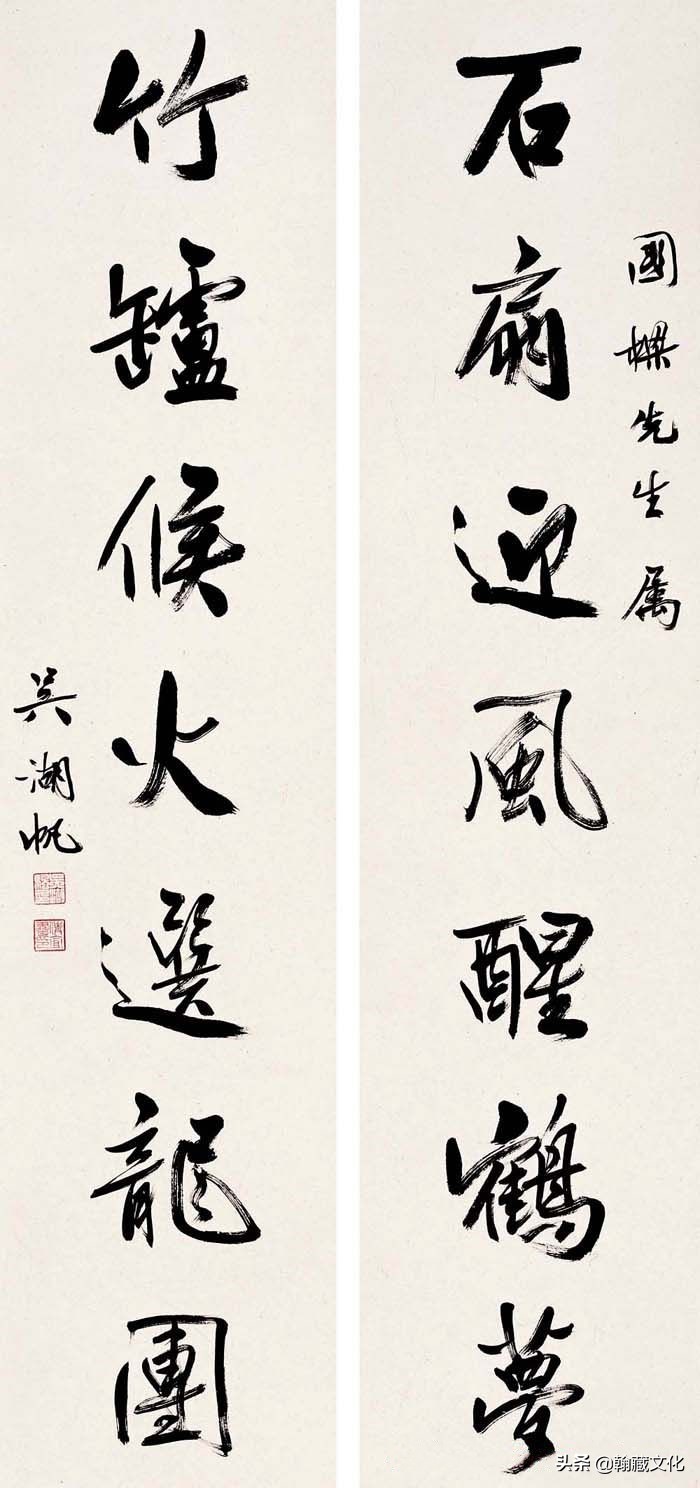 國樑先生属
石扇迎風醒鶴夢
竹罏候火選龍團
吳湖帆
头条 @翰藏文化